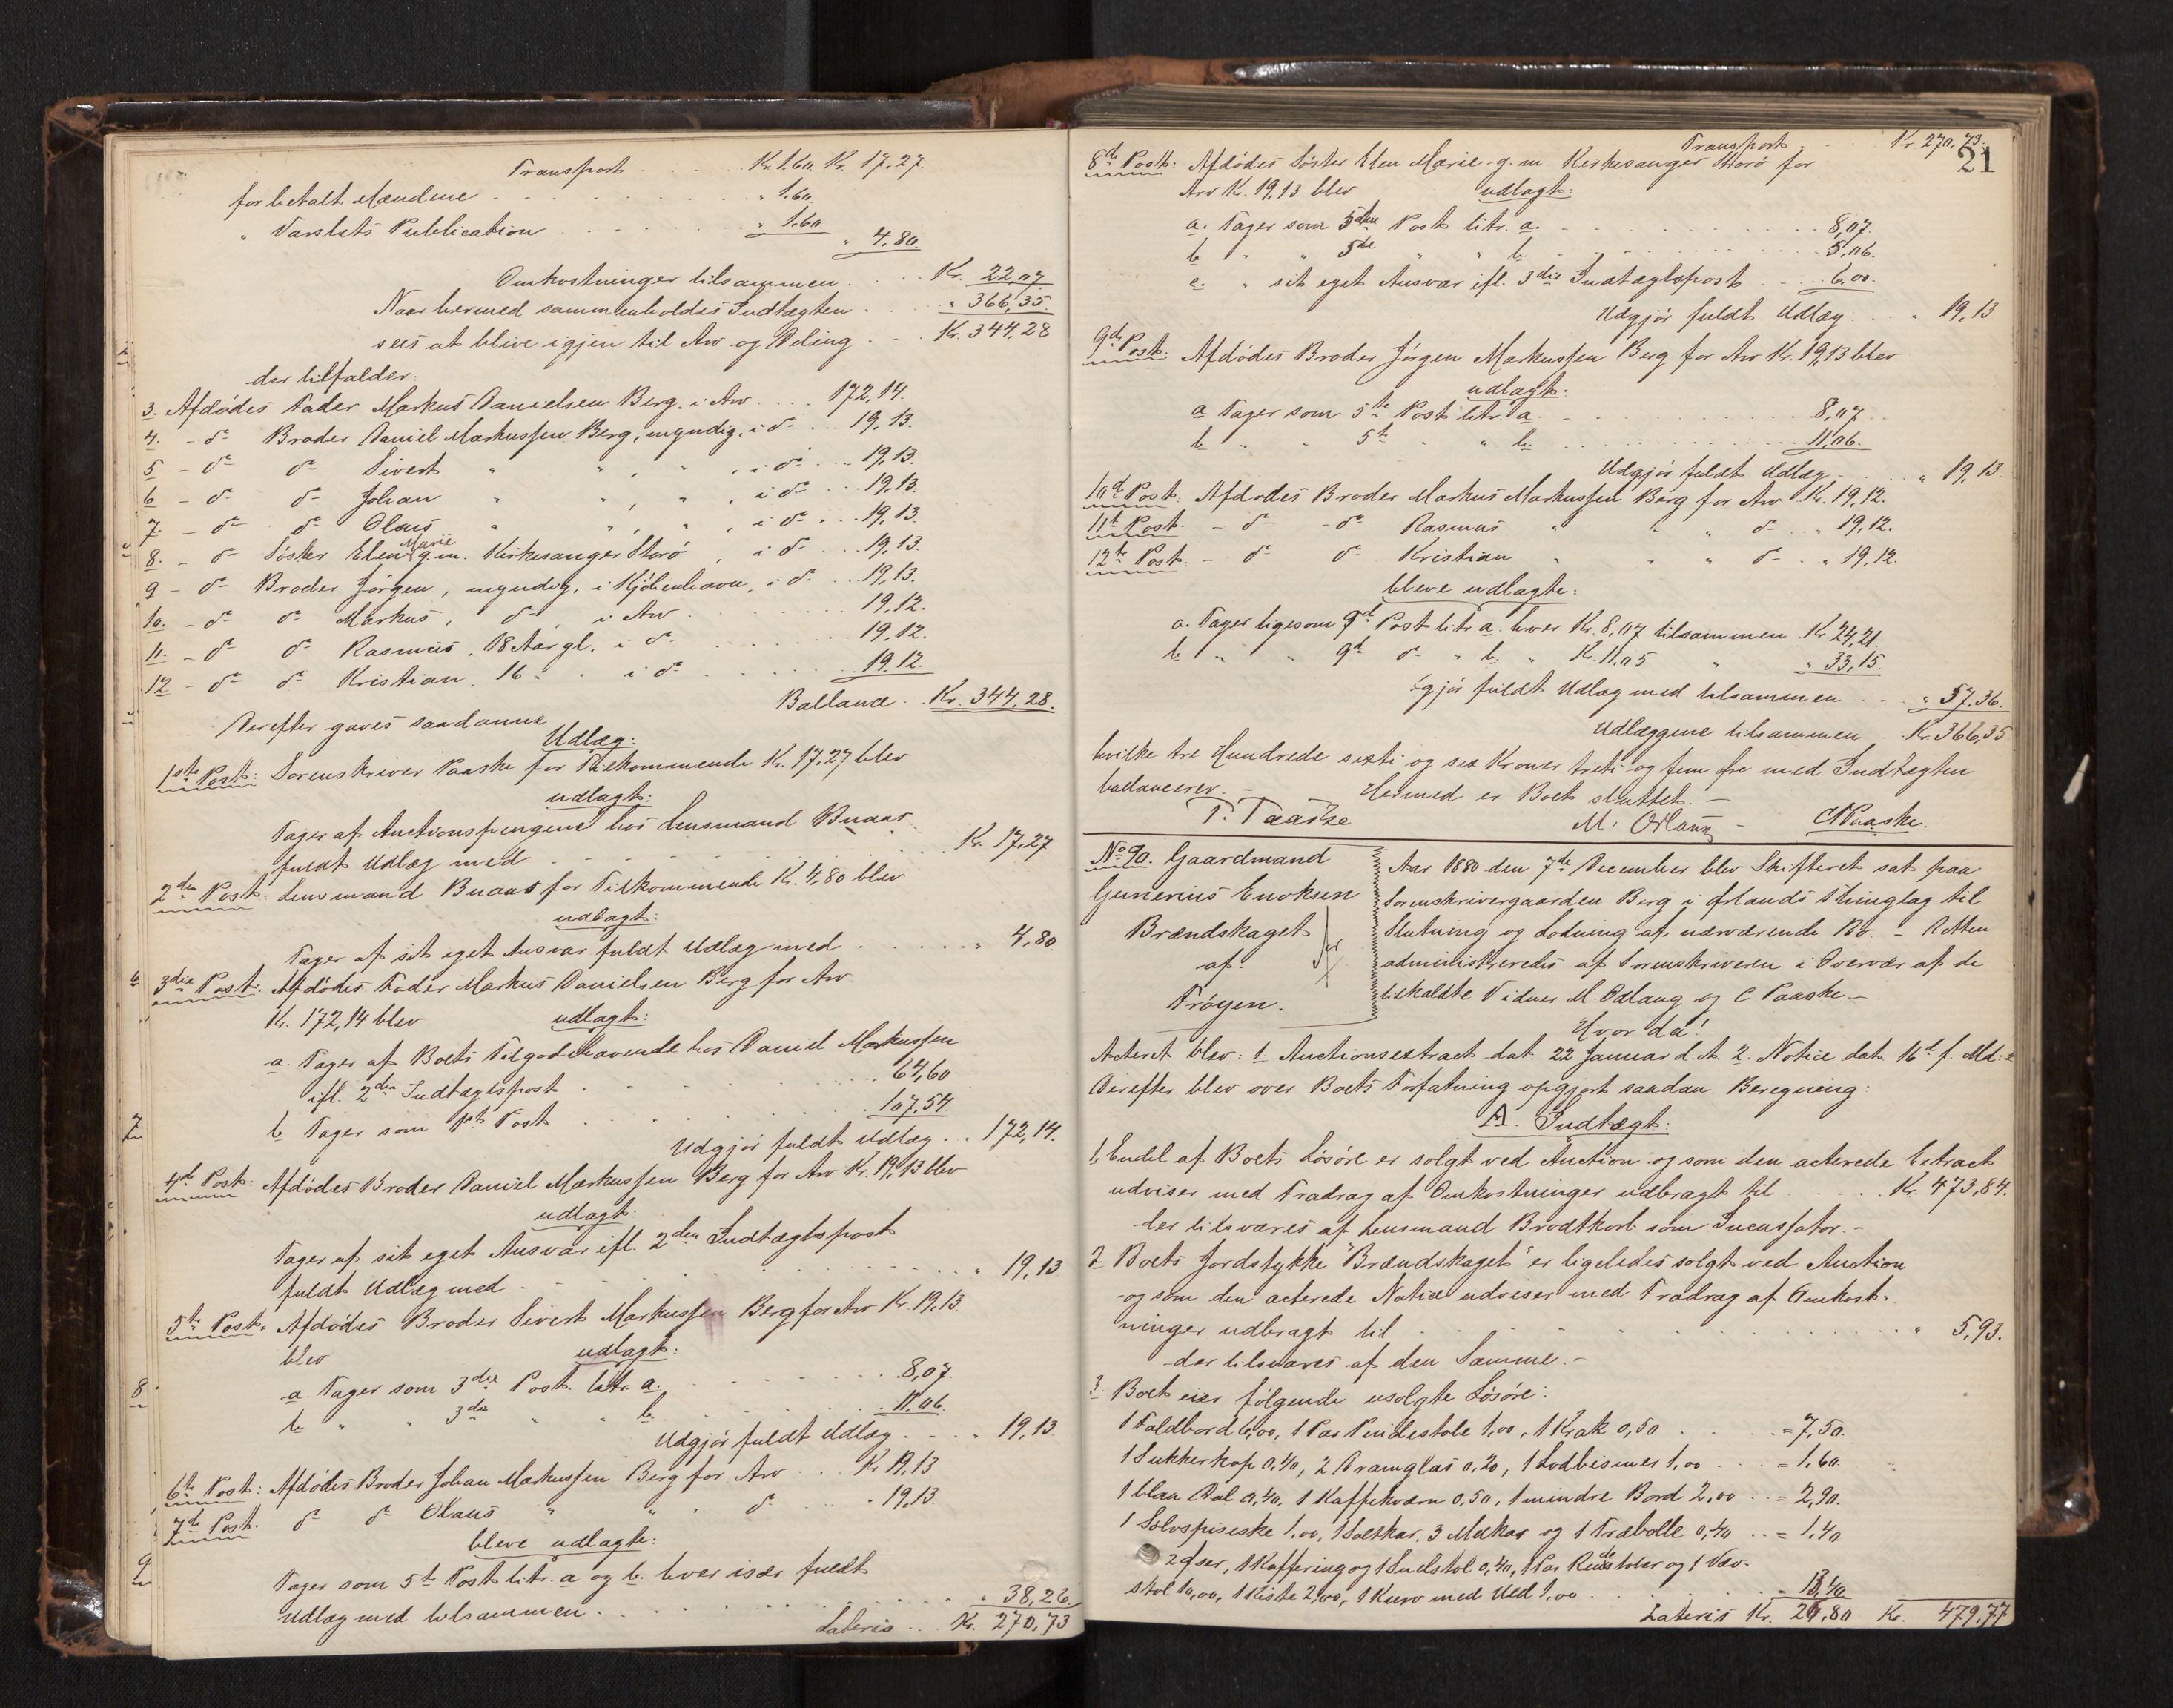 Transport . . . . . . Kr. 1.60. Kr. 17.27.
for betalt Mændene . . . . . . . . „ 1.60.
„ Varslets Publication . . . . . . . „ 1.60.
„ 4,80.
Omkostninger tilsammen . . . Kr. 22,07.
Naar hermed sammenholdes Indtægten . . . „ 366,35.
sees at blive igjen til Arv og Deling . . . Kr. 344,28
der tilfalder:
3. Afdødes Fader Markus Danielsen Berg, i Arv . . . 172,14.
4. - do Broder Daniel Markussen Berg, myndig, i do . . . 19,13.
5 - do do Sivert „ „ , „ , i do . . . 19,13.
6 - do do Johan „ „ , „ , i do . . . 19,13.
7. - do do Olaus „ „ , „ , i do . . . 19,13.
8. - do Søster Elen Marie g. m. Kirkesanger Storø , i do . . . 19,13.
9 - do Broder Jørgen, myndig, i Kjøbenhavn, i do . . . 19,13.
10. - do do Markus, do , i Arv . . . 19,12.
11. - do do Rasmus, 18 Aar gl. i do . . . 19,12.
12 - do do Kristian, 16 „ „ i do . . . 19,12.
Ballance . Kr. 344,28.
Derefter gaves saadanne
Udlæg:
1ste Post: Sorenskriver Paaske for Tilkommende Kr. 17,27 blev
udlagt:
Tager af Auctionspengene hos Lensmand Buaas
fuldt Udlæg med . . . . . Kr. 17,27
2den Post: Lensmand Buaas for Tilkommende Kr. 4,80 blev
udlagt:
Tager af sit eget Ansvar fuldt Udlæg med . . . . . „ 4,80.
3die Post: Afdødes Fader Markus Danielsen Berg for Arv
Kr. 172,14 blev udlagt:
a. Tager af Boets Tilgodehavende hos Daniel Markussen
ifl. 2den Indtægtspost . . . . . 64,60
b Tager som 1ste Post . . . . . 107,54.
Udgjør fuldt Udlæg . . 172,14.
4de Post: Afdødes Broder Daniel Markussen Berg for Arv Kr. 19,13 blev
udlagt:
Tager af sit eget Ansvar ifl. 2den Indtægtspost
fuldt Udlæg med . . . . . „ 19,13
5te Post. Afdødes Broder Sivert Markussen Berg for Arv Kr. 19,13.
blev udlagt:
a. Tager som 3die Post. litr. a. . . . . 8,07.
b „ „ 3die „ „ b. . . . . 11,06.
Udgjør fuldt Udlæg . . . „ 19,13.
6te Post: Afdødes Broder Johan Markussen Berg for Arv . . . Kr 19,13
7de Post. do do Olaus „ „ do . . . „ 19,13.
bleve udlagte:
Tager som 5te Post litr. a og b. hver især fuldt
Udlæg med tilsammen . . . . . „ 38,26.
Lateris . . . Kr. 270,73
21
Transport . Kr 270,73.
8de Post: Afdødes Søster Elen Marie g. m. Kirkesanger Storø for
Arv Kr. 19,13 blev udlagt:
a. Tager som 5te Post litr. a. . . . . 8,07.
b „ „ 5te „ „ b. . . . . 5,06.
c. „ sit eget Ansvar ifl. 3die Indtægtspost . . . 6,00.
Udgjør fuldt Udlæg . . . „ 19,13
9de Post: Afdødes Broder Jørgen Markussen Berg for Arv Kr. 19,13 blev
udlagt:
a Tager som 5te Post litr. a. . . . . 8,07
b „ „ 5te „ „ b. . . . . 11,06.
Udgjør fuldt Udlæg . . . „ 19,13.
10de Post: Afdødes Broder Markus Markussen Berg for Arv Kr. 19,12.
11te Post. - do - do Rasmus „ „ „ do . . „ 19,12.
12te Post. - do do Kristian „ „ „ do . . „ 19,12.
bleve udlagte:
a. Tager ligesom 9de Post litr. a. hver Kr. 8,07 tilsammen . Kr. 24,21.
b „ „ 9de do „ b. „ K. 11,05 „ „ 33,15.
gjør fuldt Udlæg med tilsammen . . . „ 57,36.
Udlæggene tilsammen . Kr. 366,35
hvilke tre Hundrede sexti og sex Kroner treti og fem Øre med Indtægten
ballancerer. - Hermed er Boet sluttet. -
P. Paaske M. Odlaug - C Paaske.
No 90. Gaardmand
Gunerius Enoksen
Brændskaget
af
Frøyen.
Aar 1880 den 7de December blev Skifteret sat paa
Sorenskrivergaarden Berg i Ørlands Thinglag til
Slutning og Lodning af nærværende Bo. - Retten
administreredes af Sorenskriveren i Overvær af de
tilkaldte Vidner M. Odlaug og C Paaske -
Hvor da!
Acteret blev: 1. Auctionsextract dat. 22 Januar d. A. 2. Notice dat. 16de f. Md:
Derefter blev over Boets Forfatning opgjort saadan Beregning:
A. Indtægt:
1. Endel af Boets Løsøre er solgt ved Auction og som den acterede Extract
udviser med Fradrag af Omkostninger udbragt til . . . . Kr. 473,84.
der tilsvares af Lensmand Brodtkorb som Incassator. -
2 Boets Jordstykke "Brændskaget" er ligeledes solgt ved Auction
og som den acterede Notice udviser med Fradrag af Omkost-
ninger udbragt til . . . . . „ 5,93.
der tilsvares af den Samme. -
3. Boet eier følgende usolgte Løsøre:
1 Foldbord 6,00, 1 Par Pindestole 1,00, 1 Krak 0,50 . . . = 7,50.
1 Sukkerkop 0,40, 2 Dramglas 0,20, 1 Lodbismer 1,00 . . . = 1,60.
1 blaa Dal 0,40, 1 Kaffekværn 0,50, 1 mindre Bord 2,00 . . = 2,90.
1 Sølvspiseske 1,00, 1 Saltkar, 3 Mækar og 1 Træbolle 0,40 . . = 1,40
1 Kaffering og 1 0,40, 1 Par og 1 Væv-
stol 10,00, 1 Kiste 2,00, 1 Kurv med Uld 1,00 . . . 13,40
Lateris Kr. 26,80 Kr. 479,77